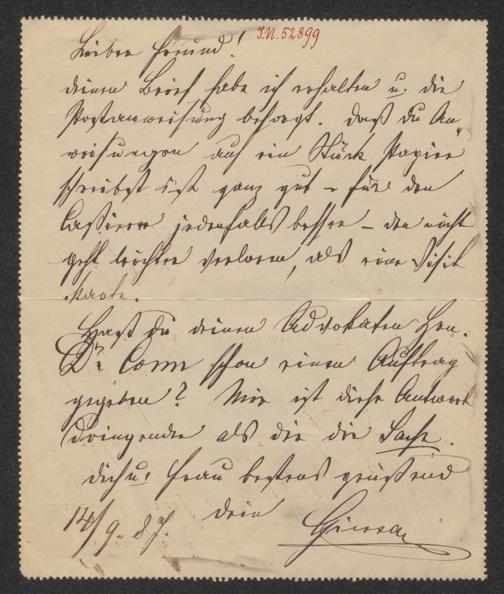 J.N. 52899
Lieber Freund!
deinen Brief habe ich erhalten u. die
Postanweisung besorgt. Daß du An-
weisungen auf ein Stück Papier
schreibst ist ganz gut – für den
Cassierer jedenfalls besser – den nicht
geht leichter verloren, als eine Visit
karte.
Hast du deinen Advokaten Hrn.
Dr. Conn schon einen Auftrag
gegeben? Mir ist diese Antwort
dringender als die die Sache.
dich u. Frau bestens grüßend
dein
14/9. 87.